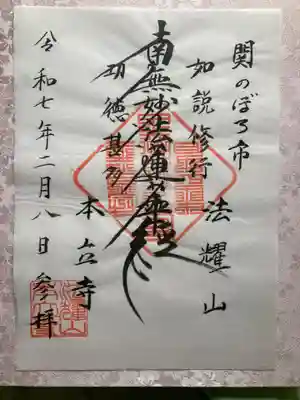 関のぼろ市
如説修行 法耀山
南無妙法蓮華経
功徳甚多 本立寺
令和七年二月八日参拝